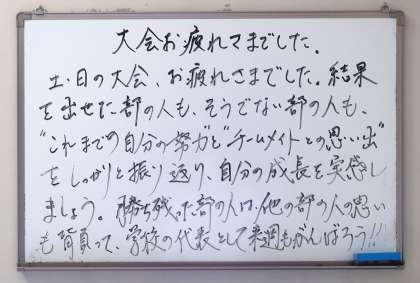 大会お疲れさまでした.
土・日の大会、お疲れさまでした。結果
を出せた部の人も、そうでない部の人も、
"これまでの自分の努力"と"チームメイトとの思い出"
をしっかりと振り返り、自分の成長を実感し
ましょう。勝ち残った部の人は、他の部の人の思い
も背負って、学校の代表として来週もがんばろう!!